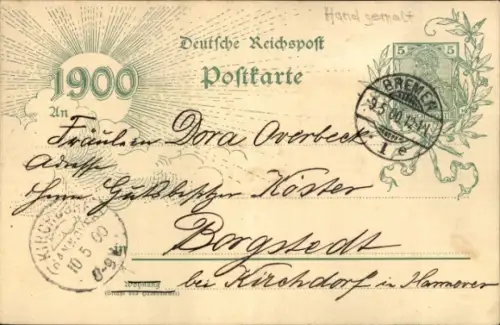 Hand gemalt
Deutsche Reichspost
Postkarte
1900
5 5
BREMEN
9.5.00.12-1N.
1 e
An
Fräulein Dora Overbeck
Adresse
Herrn Gutsbesitzer Köster
in Borgstedt
bei Kirchdorf in Hannover
Wohnung
KIRCHDORF
10 5 00
8-9V